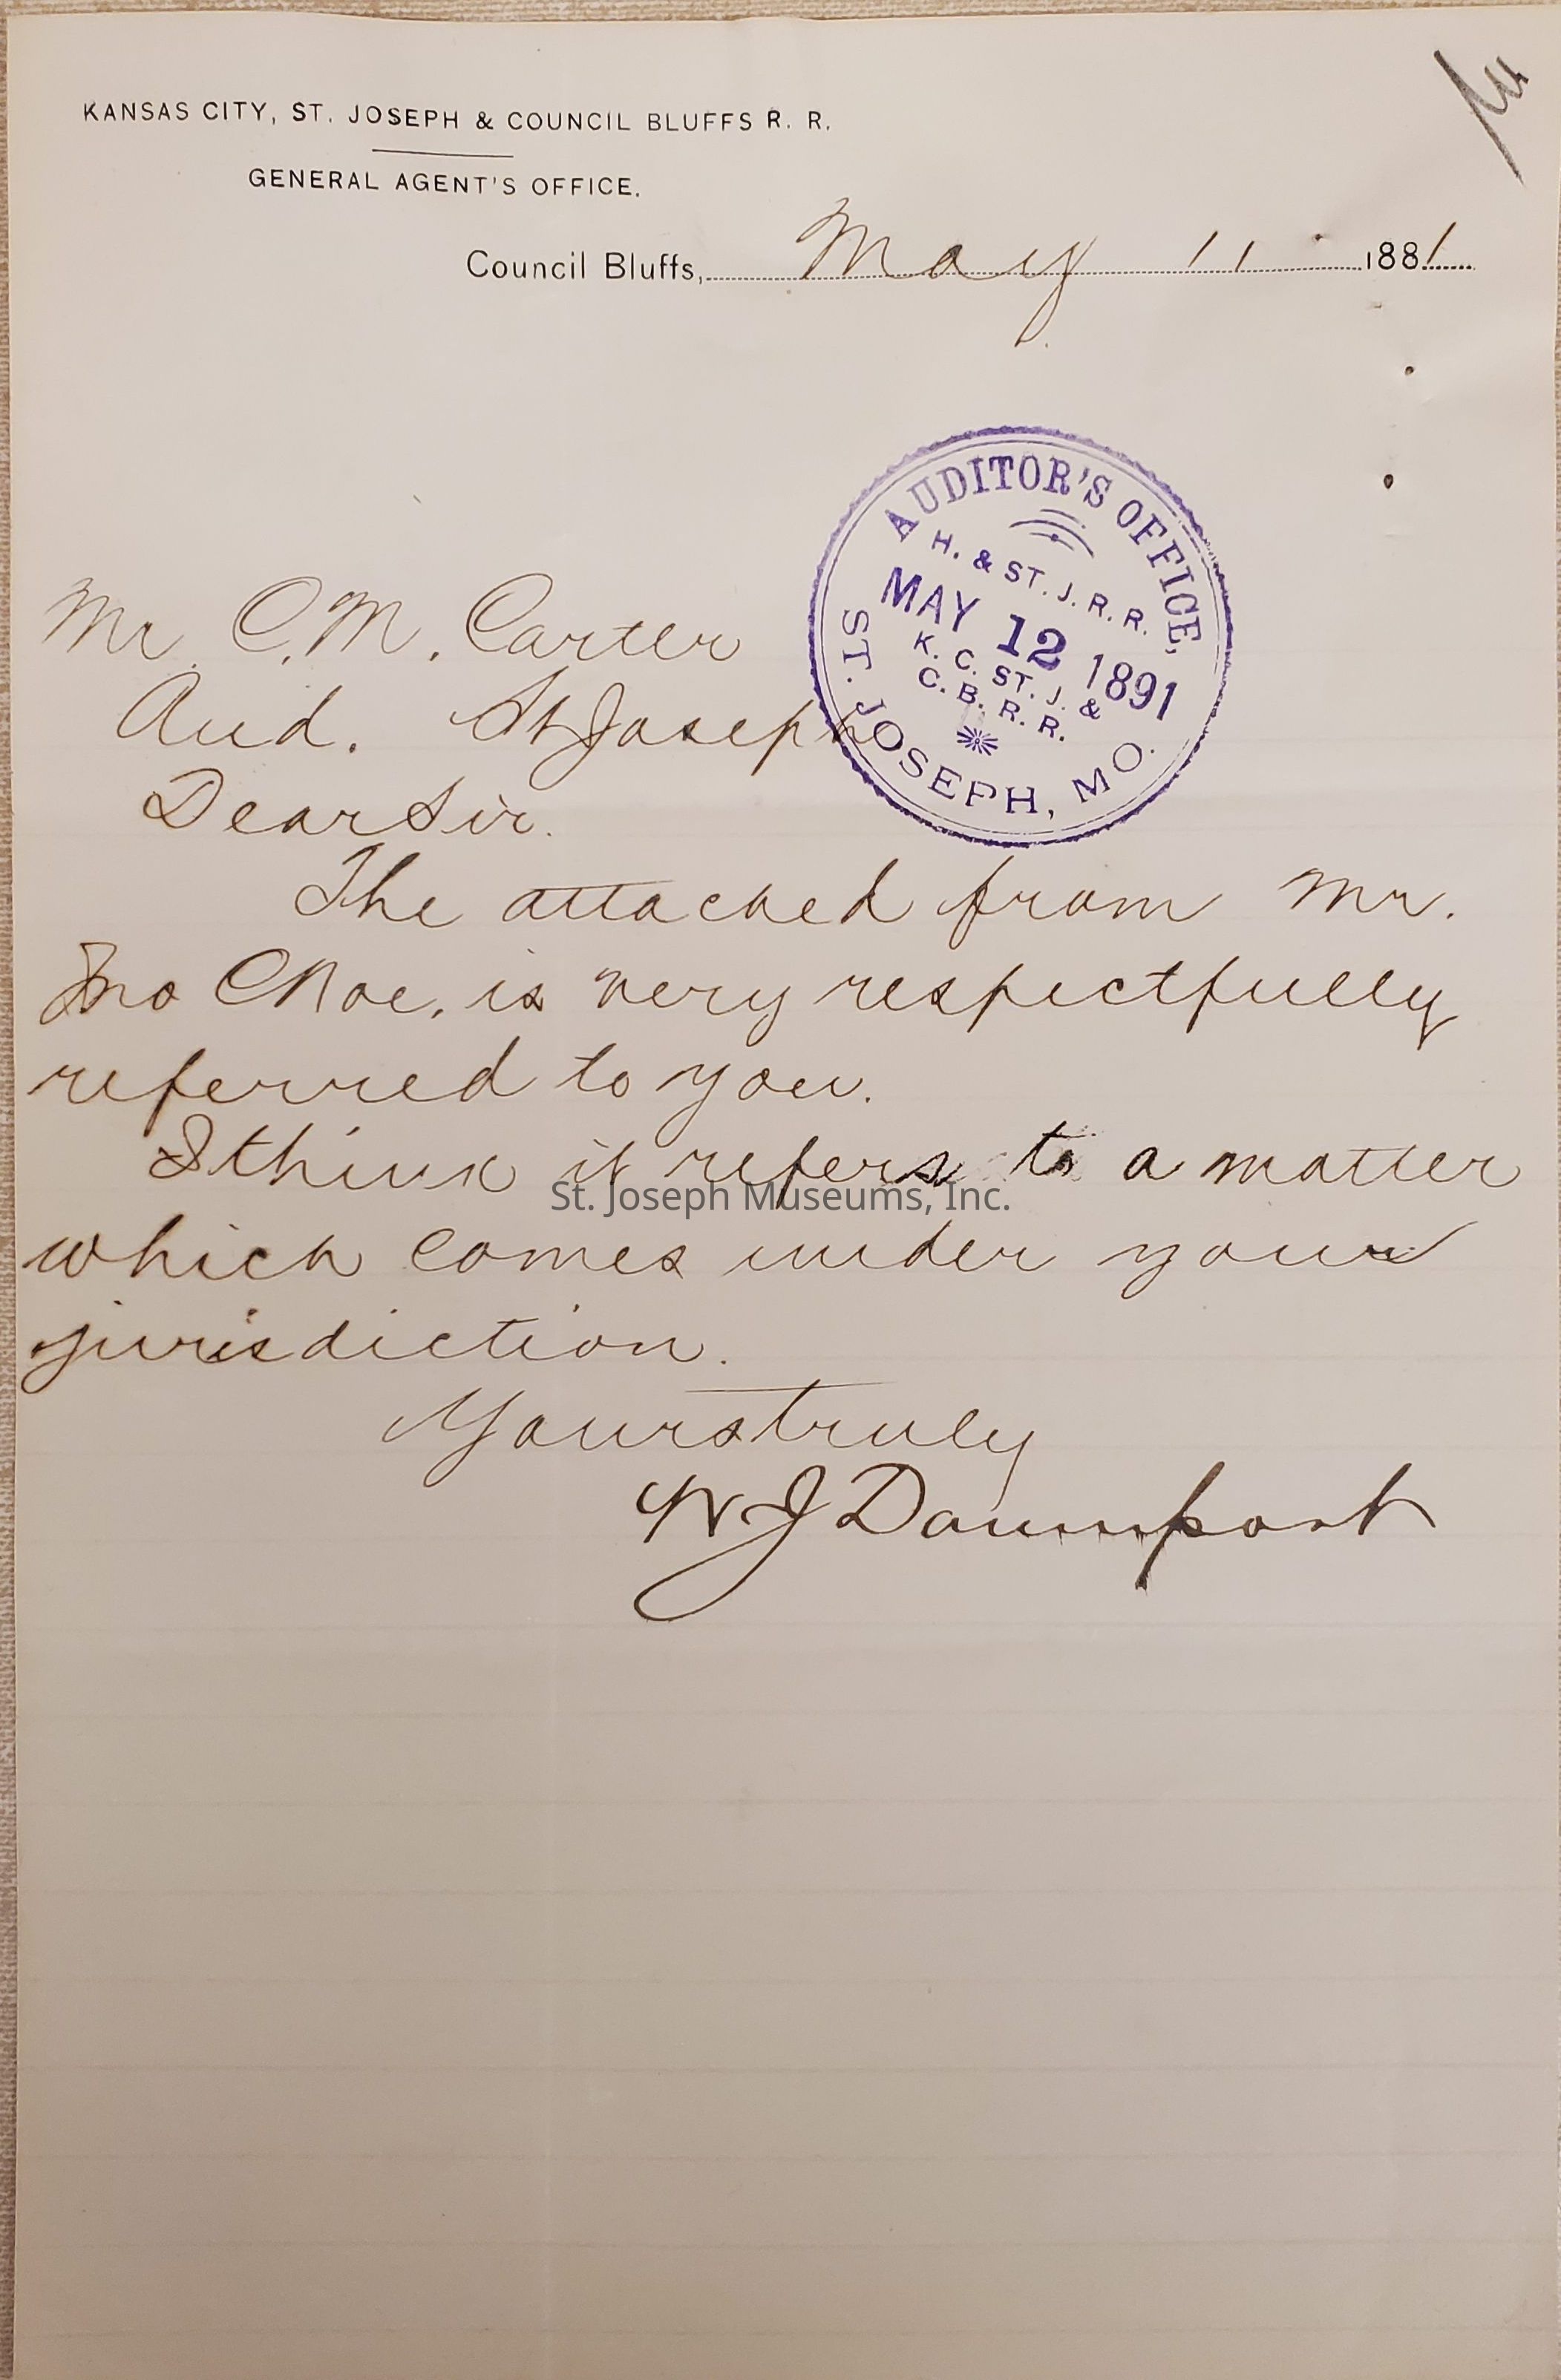 KANSAS CITY, ST. JOSEPH & COUNCIL BLUFFS R. R.
GENERAL AGENT'S OFFICE.
Council Bluffs, May 11 1881
AUDITOR'S OFFICE,
H. & ST. J. R. R.
MAY 12 1891
K. C. ST. J. &
C. B. R. R.
ST. JOSEPH, MO.
Mr. C. M. Carter
Aud. St Joseph
Dear Sir.
The attached from Mr.
Jno C Noe, is very respectfully
referred to you.
I think it refers to a matter
St. Joseph Museums, Inc.
which comes under your
jurisdiction.
Yours truly
W J Davenport